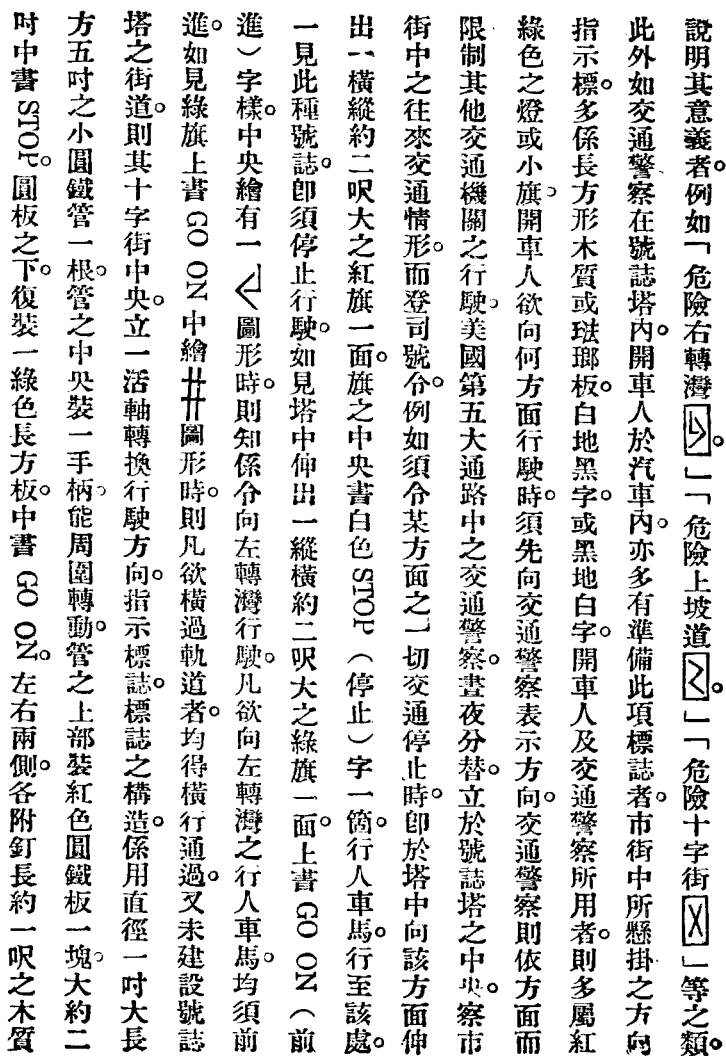 說明其意義者。例如「危險右轉灣。」「危險上坡道。」「危險十字街」等之類。
此外如交通警察在號誌塔內。開車人於汽車內。亦多有準備此項標誌者。市街中所懸掛之方向
指示標。多係長方形木質或琺瑯板。白地黑字。或黑地白字。開車人及交通警察所用者。則多屬紅
綠色之燈或小旗。開車人欲向何方面行駛時。須先向交通警察表示方向。交通警察則依方面而
限制其他交通機關之行駛。美國第五大通路中之交通警察。晝夜分替。立於號誌塔之中央。察市
街中之往來交通情形。而登司號令。例如須令某方面之一切交通停止時。卽於塔中向該方面伸
出一橫縱約二呎大之紅旗一面。旗之中央書白色STOP（停止）字一箇。行人車馬。行至該處。
一見此種號誌。卽須停止行駛。如見塔中伸出一縱橫約二呎大之綠旗一面。上書GO ON（前
進）字樣。中央繪有一圖形時。則知係令向左轉灣行駛。凡欲向左轉灣之行人車馬。均須前
進。如見綠旗上書GO ON中繪圖形時。則凡欲橫過軌道者。均得橫行通過。又未建設號誌
塔之街道。則其十字街中央。立一活軸轉換行駛方向。指示標誌。標誌之構造。係用直徑一吋大長
方五吋之小圓鐵管一根。管之中央裝一手柄。能周圍轉動。管之上部裝紅色圓鐵板一塊。大約二
吋中書STOP。圓板之下。復裝一綠色長方板。中書GO ON。左右兩側。各附釘長約一呎之木質